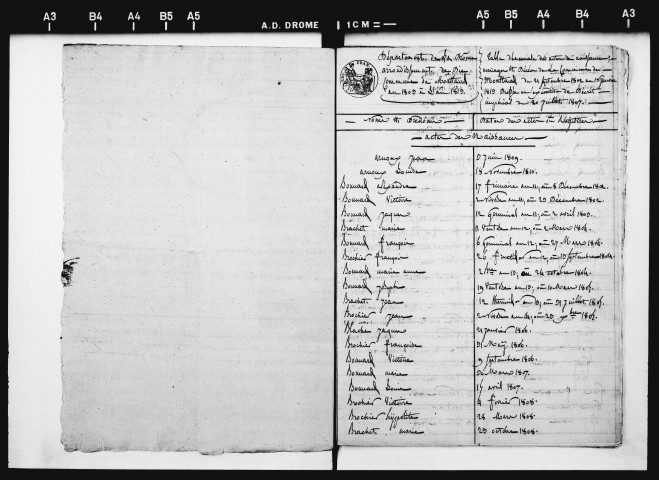 A3 B4 A4 B5 A5 A.D. DROME 1 CM A5 B5 A4 B4 A3
Département de la Drome
arrondissement de Die
Commune de Montlaur
an 1802 à l'an 1813.
Table décennale des actes de naissances
mariages et Décès de la Commune de
21 septembre 1802 au 1er janvier
1813. Dressée en exécution du Décret
impérial du 20 juillet 1807.
Noms et Prénoms Dates des actes du Registre
actes de Naissances
arnoux jean juin 1809.
arnoux Louise 18 novembre 1810.
Bonnard alexandre 17 frimaire an 11, ou 8 Décembre 1802.
Bonnard Victoire 2 nivose an 11, ou 23 Décembre 1802.
Bonnard jaques 12 Germinal an 11, ou 2 avril 1803.
Brachet marie Ventose an 12, ou 2 Mars 1804.
Bonnard françois 6 Germinal an 12, ou 27 Mars 1804.
Brochier françois 26 fructidor an 12, ou 13 septembre 1804.
Bonnard marie anne 2 Bre an 13, ou 24 octobre 1804.
Bonnard 19 Ventose an 13, ou 10 Mars 1805.
Brachet jean 12 thermidor an 13, ou 31 juillet 1805.
Brochier jean 2 nivose an 14, ou 23 xbre 1805.
Blache jaques 21 janvier 1806.
Brochier françoise 31 May 1806.
Bonnard Victoire 9 septembre 1806.
Bonnard marie 30 Mars 1807.
Bonnard Louise 17 avril 1807.
Brochier Victoire 4 fevrier 1808.
Brochier hippolite 28 Mars 1808.
Brachet marie 23 octobre 1808.